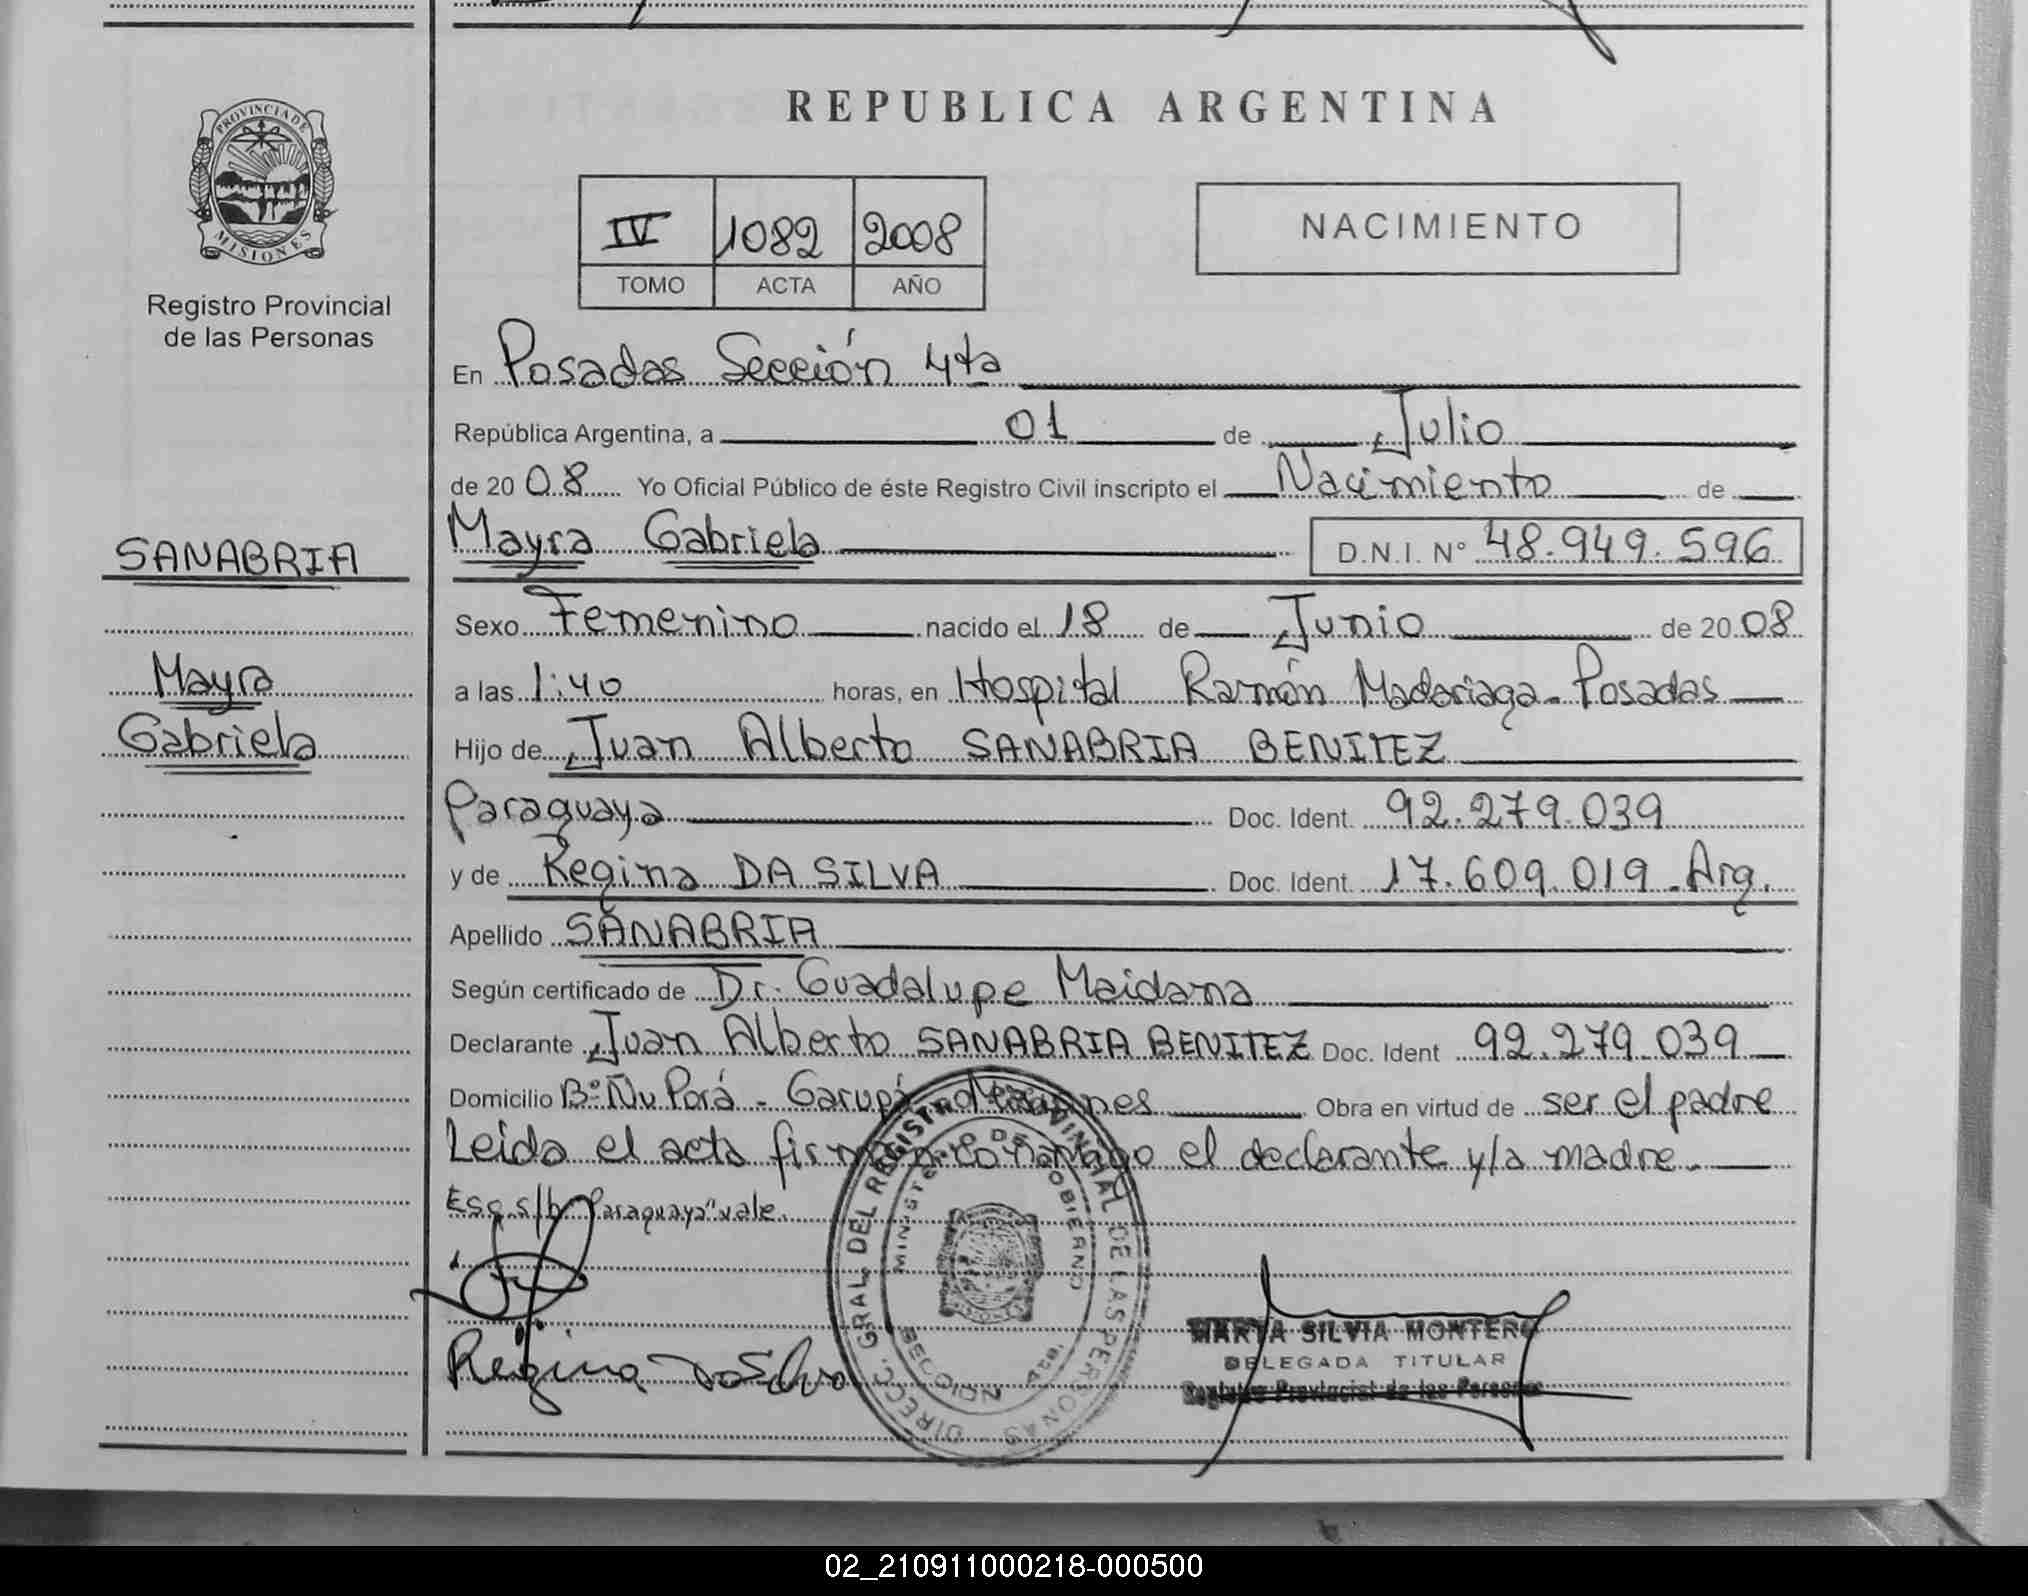 REPUBLICA ARGENTINA
PROVINCIA DE
MISIONES
Registro Provincial
de las Personas
IV 1082 2008
TOMO ACTA AÑO
NACIMIENTO
En Posadas Sección 4ta
República Argentina, a 01 de Julio
de 20 08 Yo Oficial Público de éste Registro Civil inscripto el Nacimiento de
SANABRIA
Mayra Gabriela D.N.I. N° 48.949.596
Sexo Femenino nacido el 18 de Junio de 20 08
Mayra
a las 1:40 horas, en Hospital Ramón Madariaga - Posadas
Gabriela
Hijo de Juan Alberto SANABRIA BENITEZ
Paraguaya Doc. Ident. 92.279.039
y de Regina DA SILVA Doc. Ident. 17.609.019 - Arg.
Apellido SANABRIA
Según certificado de Dr. Guadalupe Maidana
Declarante Juan Alberto SANABRIA BENITEZ Doc. Ident 92.279.039
Domicilio B° Ñu Porá - Garupá - Misiones Obra en virtud de ser el padre
Leida el acta firman conmigo el declarante y/a madre.
Esc s/b "Paraguaya" vale.
Regina DaSilva
DIRECC. GRAL. DEL REGISTRO PROVINCIAL DE LAS PERSONAS
MINISTERIO DE GOBIERNO
SECCION 4ta.
MARTA SILVIA MONTERO
DELEGADA TITULAR
Registro Provincial de las Personas
02_210911000218-000500